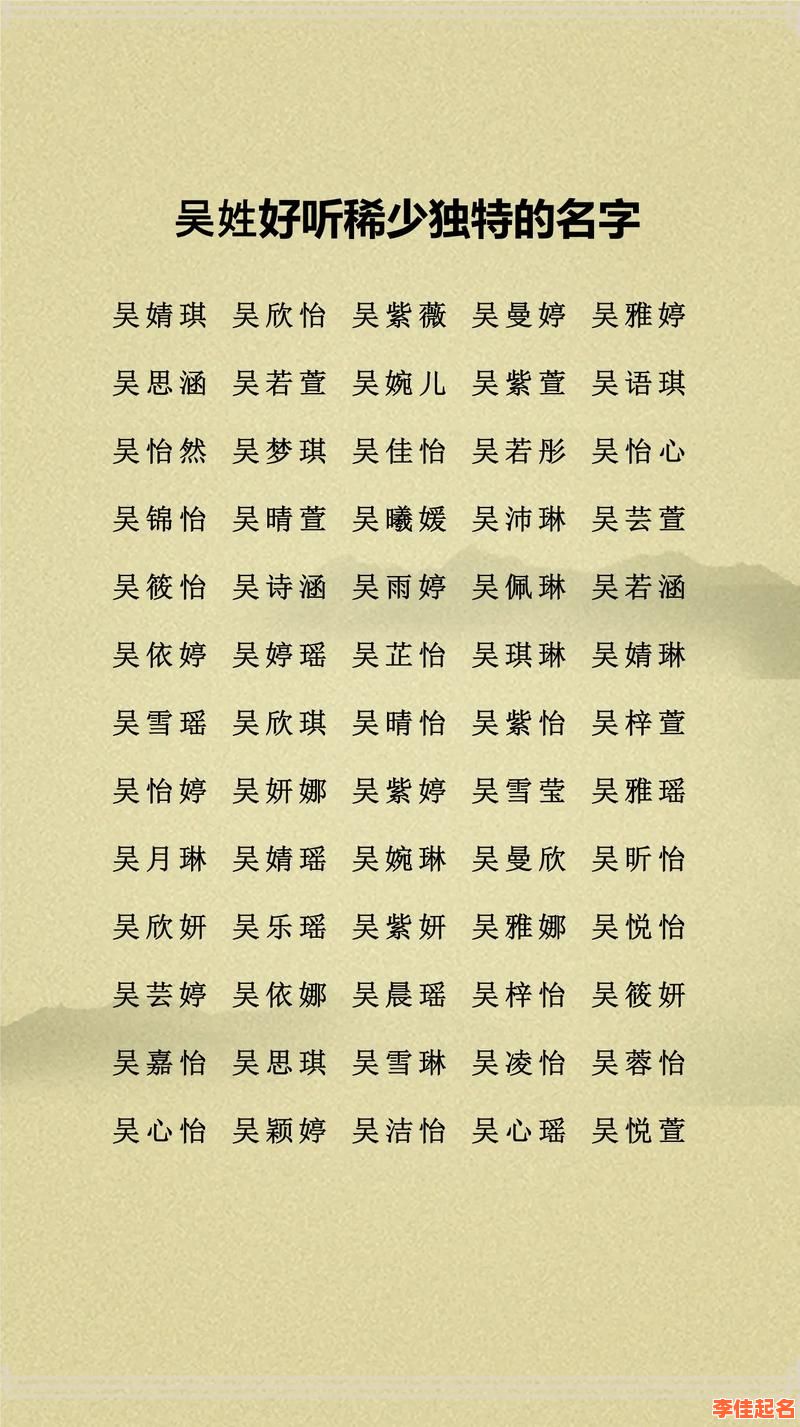 吴姓好听稀少独特的名字
吴婧琪 吴欣怡 吴紫薇 吴曼婷 吴雅婷
吴思涵 吴若萱 吴婉儿 吴紫萱 吴语琪
吴怡然 吴梦琪 吴佳怡 吴若彤 吴怡心
吴锦怡 吴晴萱 吴曦媛 吴沛琳 吴芸萱
吴筱怡 吴诗涵 吴雨婷 吴佩琳 吴若涵
吴依婷 吴婷瑶 吴芷怡 吴琪琳 吴婧琳
吴雪瑶 吴欣琪 吴晴怡 吴紫怡 吴梓萱
吴怡婷 吴妍娜 吴紫婷 吴雪莹 吴雅瑶
吴月琳 吴婧瑶 吴婉琳 吴曼欣 吴昕怡
吴欣妍 吴乐瑶 吴紫妍 吴雅娜 吴悦怡
吴芸婷 吴依娜 吴晨瑶 吴梓怡 吴筱妍
吴嘉怡 吴思琪 吴雪琳 吴凌怡 吴蓉怡
吴心怡 吴颖婷 吴洁怡 吴心瑶 吴悦萱
李佳起名